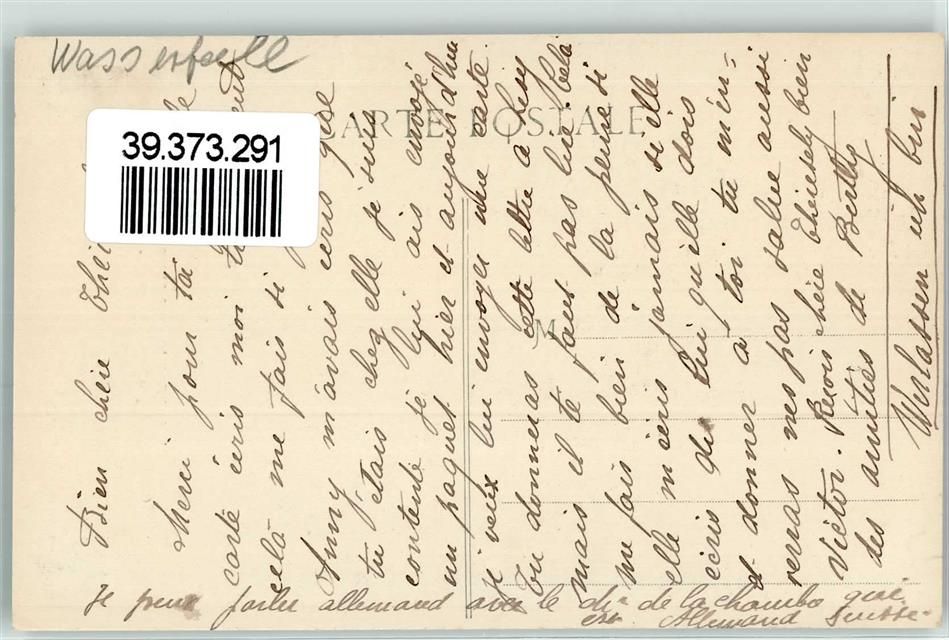 Wasserfall
39.373.291
CARTE POSTALE
Bien chère
Merci pour ta
carte écris moi
cela me fais si
Anny m'avais écris que
tu étais chez elle je suis
contente je lui ais envoyé
un paquet hier et aujourd'hui
je veux lui envoyer une carte
Tu donneras cette lettre à
mais il te faut pas lui
me fais bien de la peine si
elle m'écris jamais si elle
écris dis lui qu'elle dois
donner à toi. tu m'en-
verras mes pas salue aussi
Victor. Reçois chère bien
des amitiés de
Verlassen ich bin
Je peux parler allemand avec le de la chambe qui
est Allemand Suisse